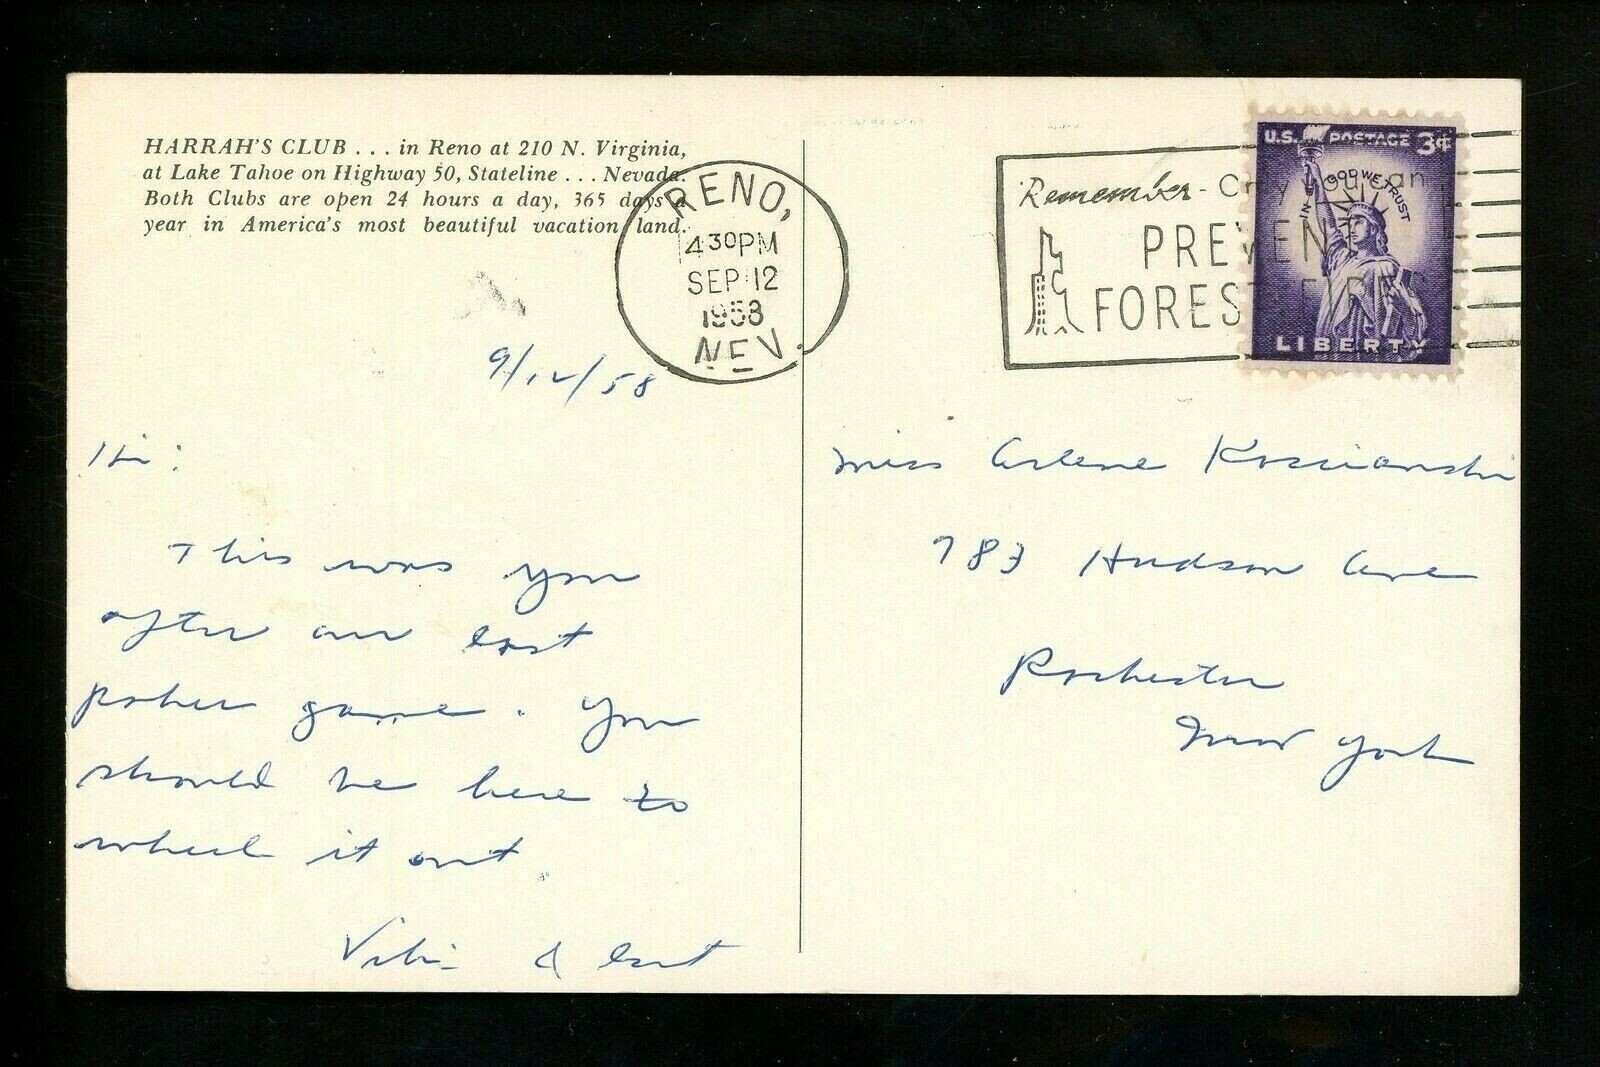 HARRAH'S CLUB . . . in Reno at 210 N. Virginia,
at Lake Tahoe on Highway 50, Stateline . . . Nevada.
Both Clubs are open 24 hours a day, 365 days a
year in America's most beautiful vacation land.
RENO,
430PM
SEP 12
1958
NEV.
Remember - Only You can
PREVENT
FOREST FIRES
U.S. POSTAGE 3¢
IN GOD WE TRUST
LIBERTY
9/12/58
Hi:
This was you
after our last
poker game. You
should be here to
wheel it out.
&
Miss Arlene
783 Hudson Ave
Rochester
New York